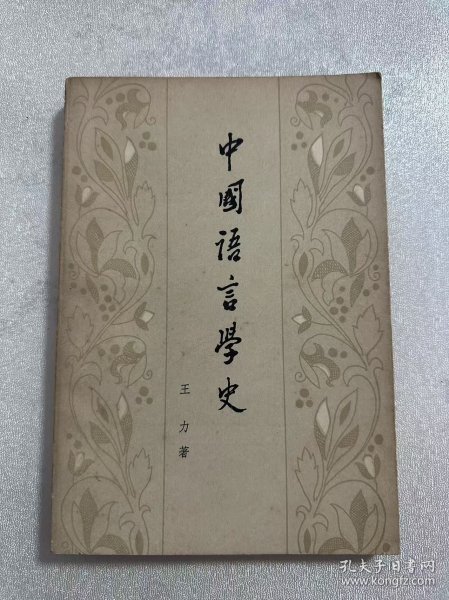 中國語言學史
王力著
孔夫子旧书网
www.kongfz.com